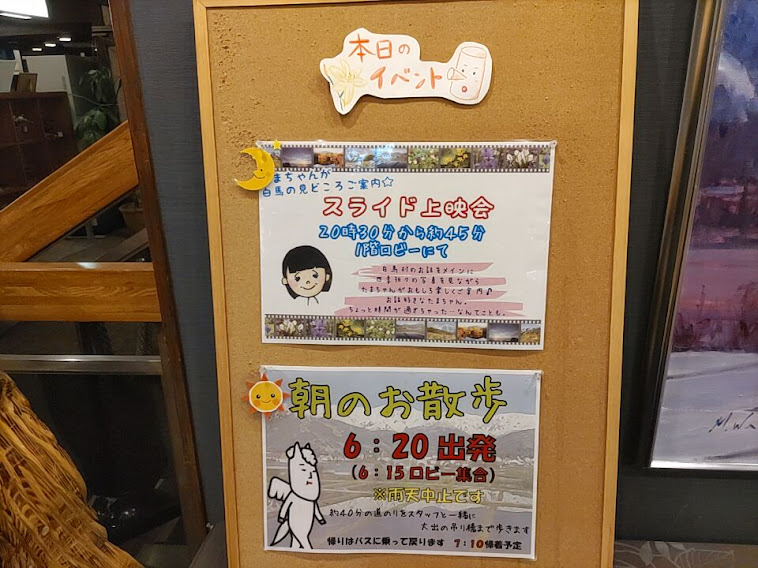 本日の
イベント
まちゃんが
白馬の見どころご案内☆
スライド上映会
20時30分から約45分
1階ロビーにて
白馬村のお話をメインに
四季折々の写真を見ながら
たまちゃんがおもしろ楽しくご案内♪
お話好きなたまちゃん。
ちょっと時間が過ぎちゃった…なんてことも。
朝のお散歩
6：20出発
（6：15ロビー集合）
※雨天中止です
約40分の道のりをスタッフと一緒に
大出の吊り橋まで歩きます
帰りはバスに乗って戻ります 7：10帰着予定